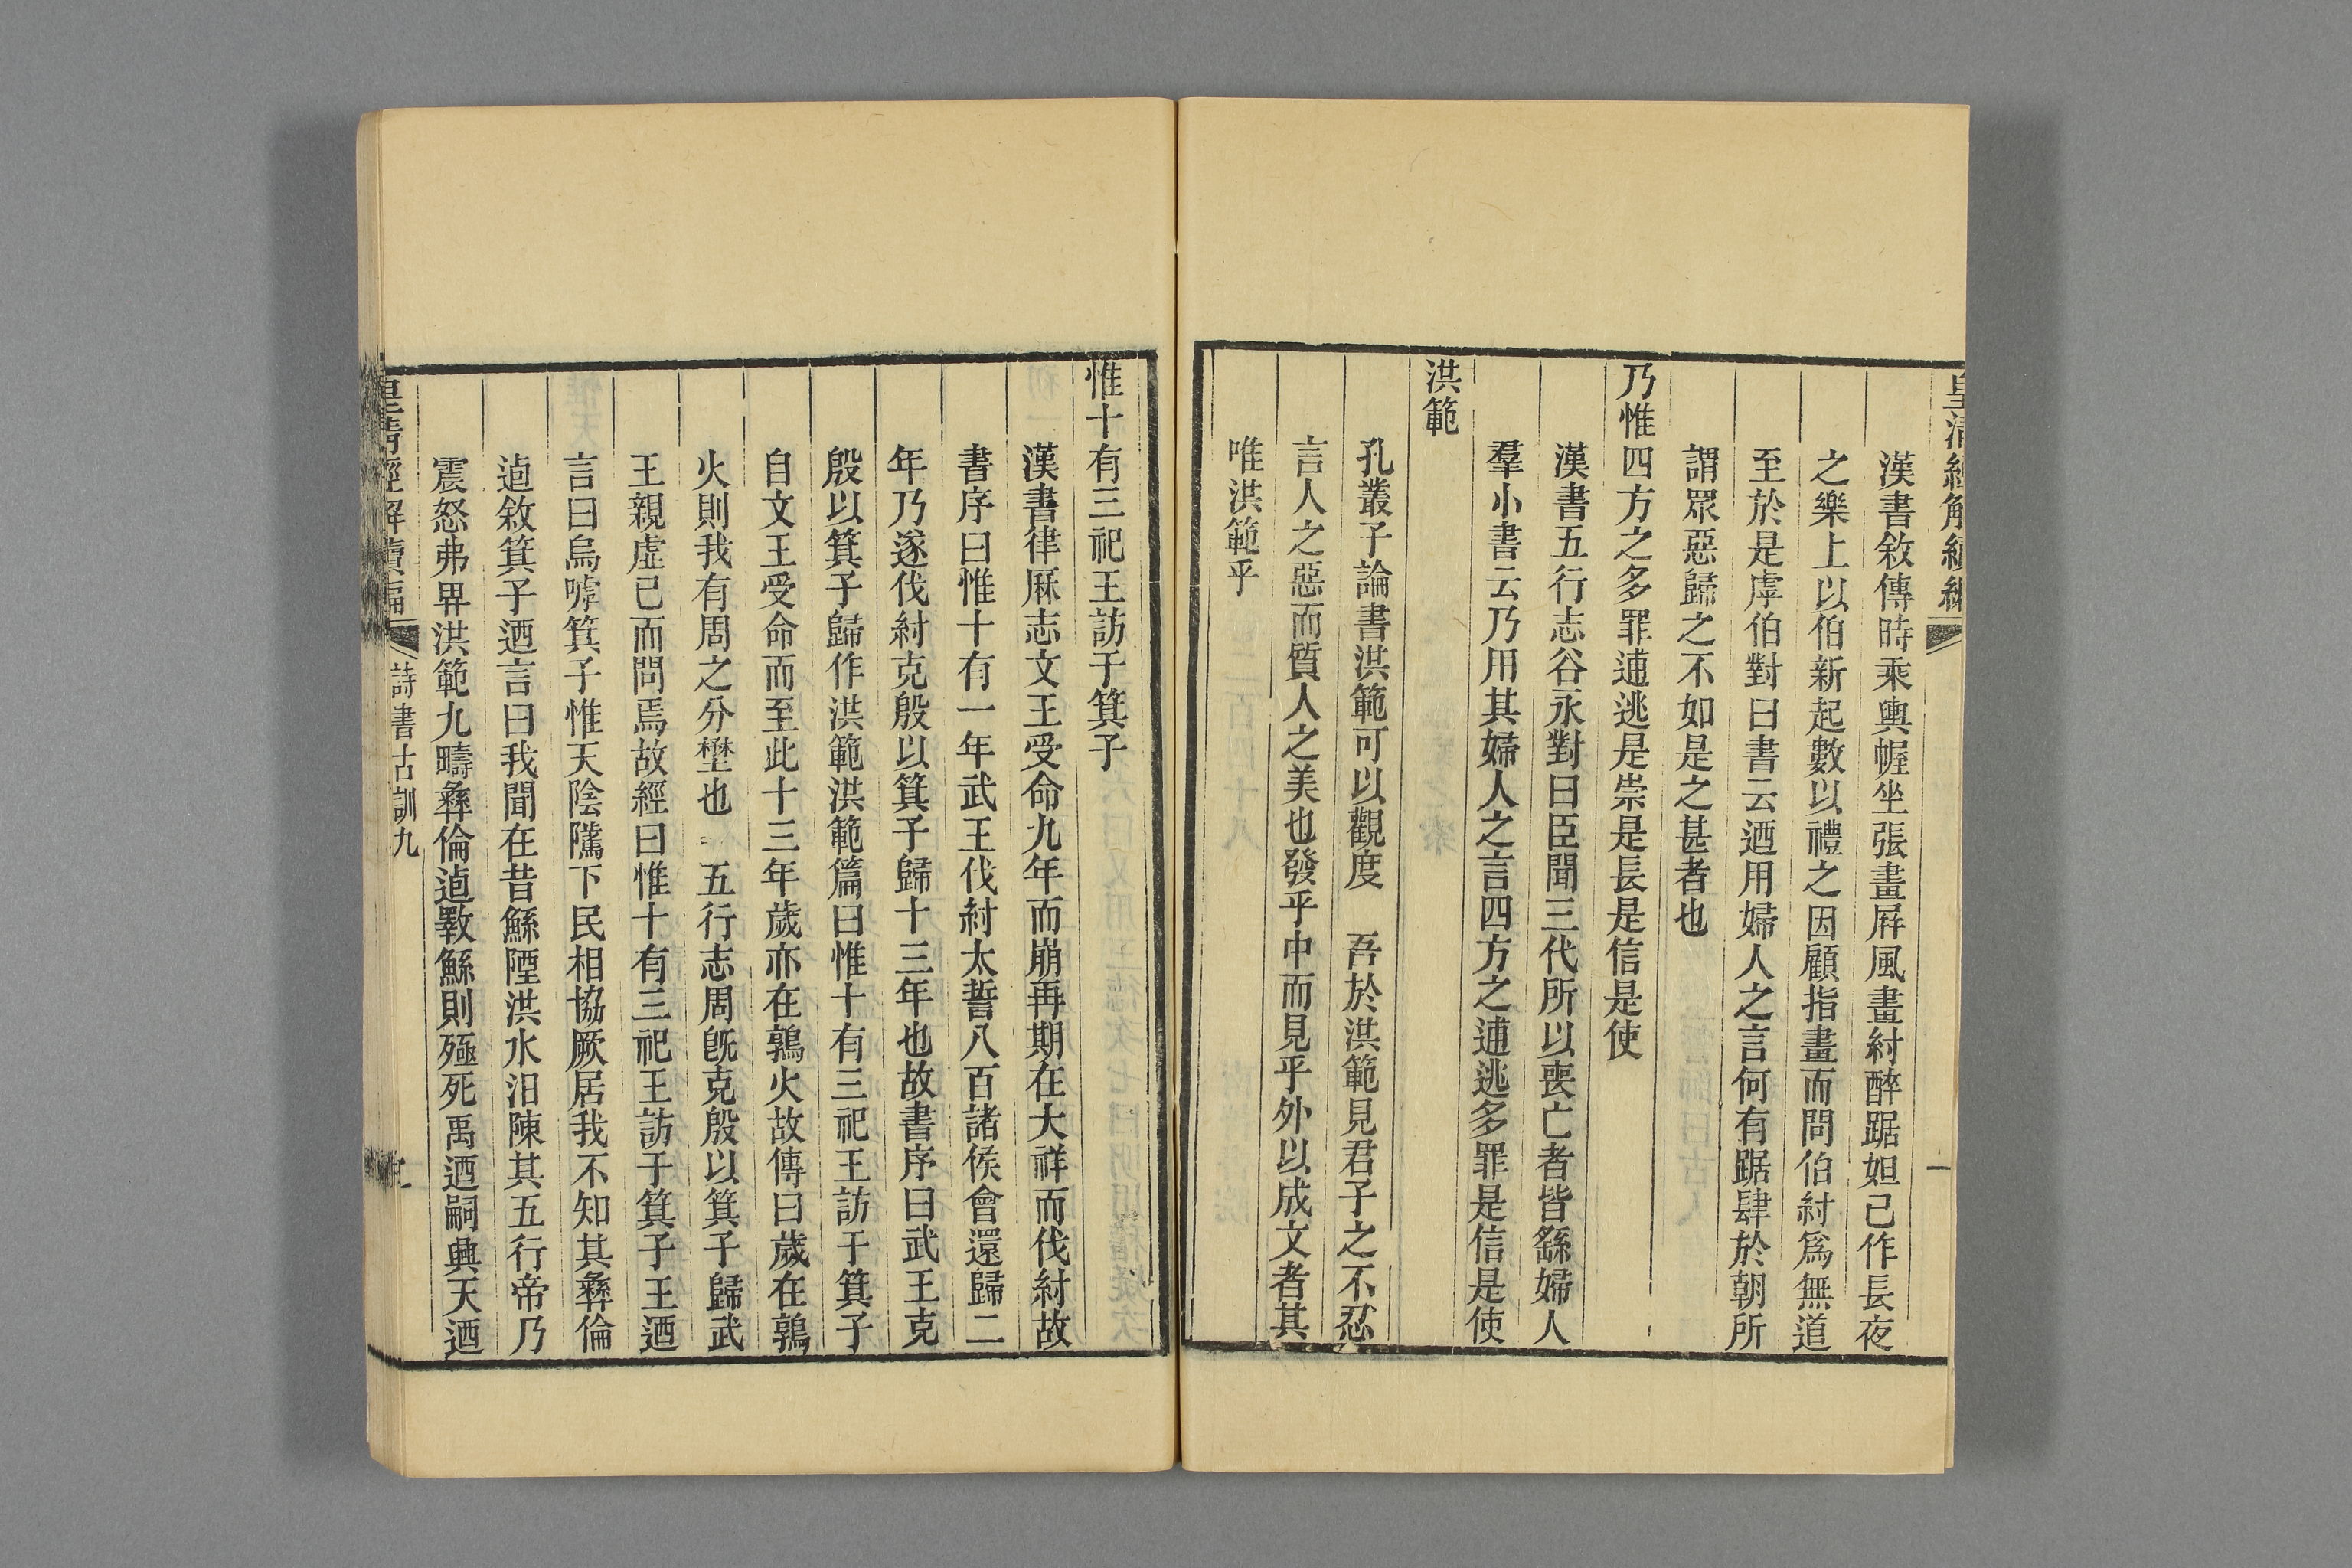 皇清經解續編
漢書敘傳時乘輿幄坐張畫屛風畫紂醉踞妲己作長夜
之樂上以伯新起數以禮之因顧指畫而問伯紂爲無道
至於是虖伯對曰書云迺用婦人之言何有踞肆於朝所
謂眾惡歸之不如是之甚者也
乃惟四方之多罪逋逃是崇是長是信是使
漢書五行志谷永對曰臣聞三代所以喪亡者皆繇婦人
羣小書云乃用其婦人之言四方之逋逃多罪是信是使
洪範
孔叢子論書洪範可以觀度 吾於洪範見君子之不忍
言人之惡而質人之美也發乎中而見乎外以成文者其
唯洪範乎
惟十有三祀王訪于箕子
漢書律厤志文王受命九年而崩再期在大祥而伐紂故
書序曰惟十有一年武王伐紂太誓八百諸侯會還歸二
年乃遂伐紂克殷以箕子歸十三年也故書序曰武王克
殷以箕子歸作洪範洪範篇曰惟十有三祀王訪于箕子
自文王受命而至此十三年歲亦在鶉火故傳曰歲在鶉
火則我有周之分壄也 五行志周旣克殷以箕子歸武
王親虛己而問焉故經曰惟十有三祀王訪于箕子王迺
言曰烏嘑箕子惟天陰隲下民相協厥居我不知其彝倫
逌敘箕子迺言曰我聞在昔鯀陻洪水汨陳其五行帝乃
震怒弗畀洪範九疇彝倫逌斁鯀則殛死禹迺嗣興天迺
皇清經解續編 詩書古訓九